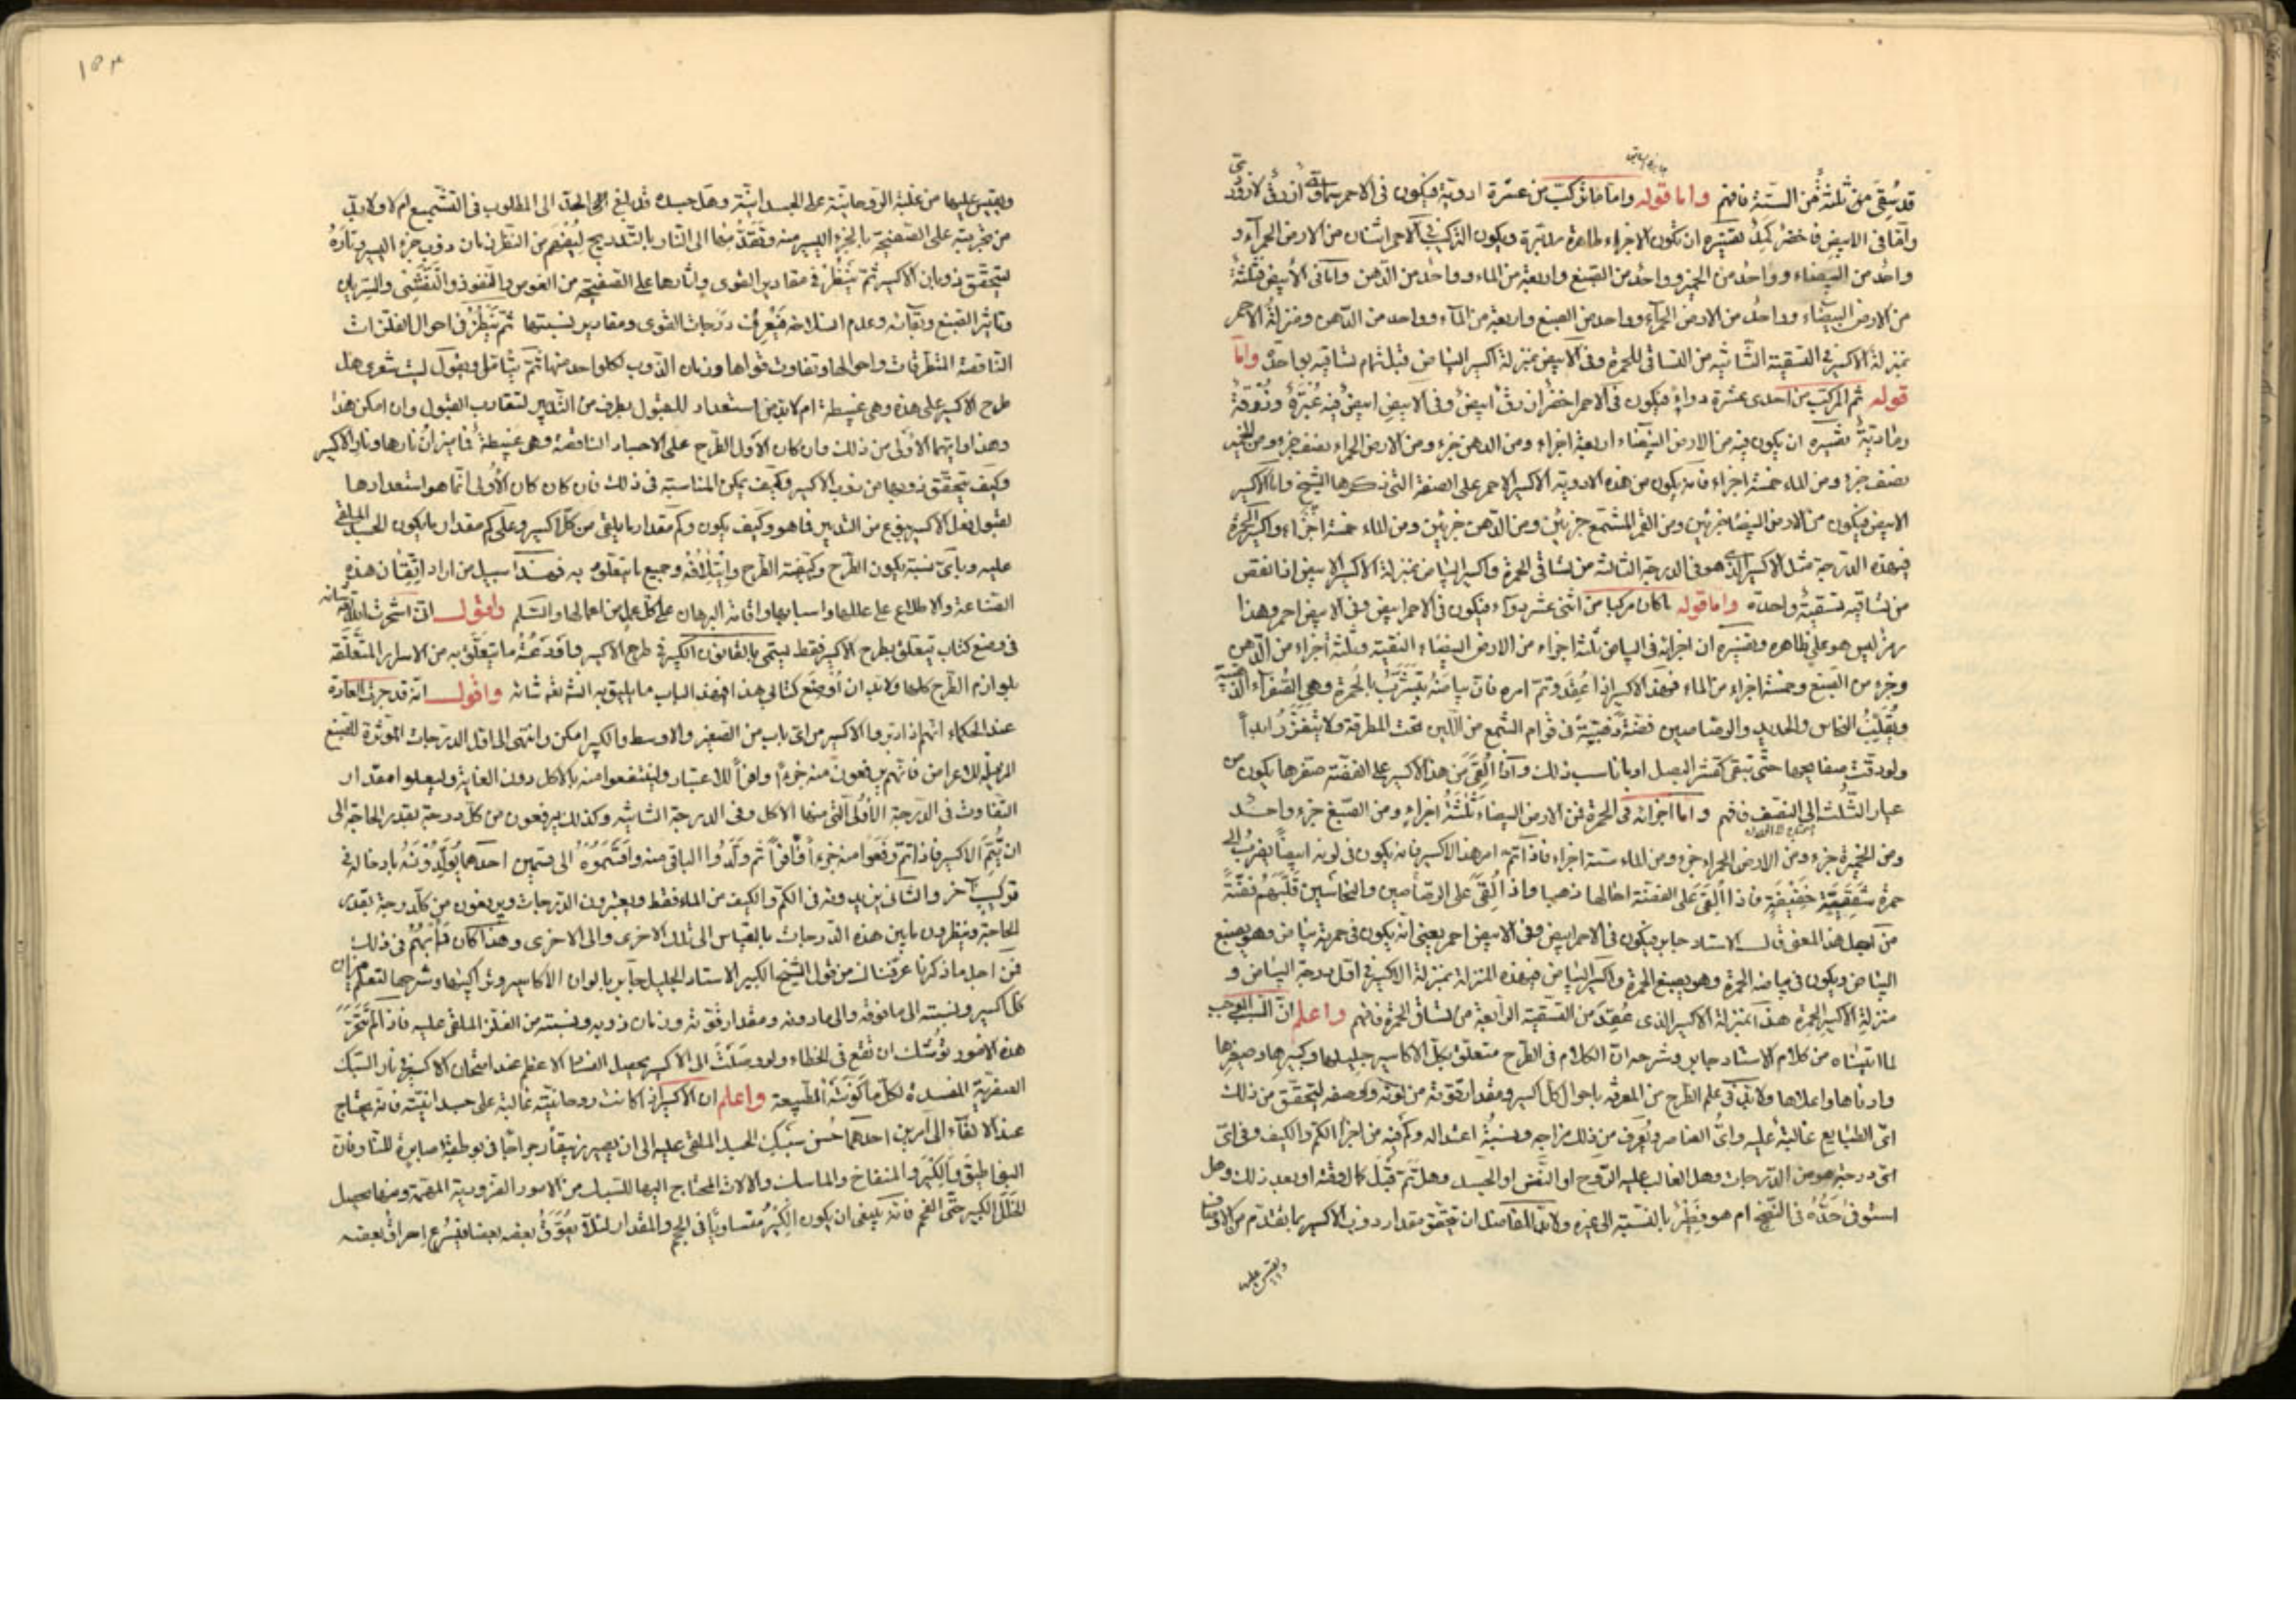 قد سُقِىَ من ثلثةٍ من الستّة فافهم واما قوله واما ما تركّب من عشرة ادوية فيكون فى الاحمر ازرق لازوردى
وامّا فى الابيض فاخضر تفسيره ان تكون الاجزاء طاهرة ويكون التركيب فى الاحمر اثنان من الارض الحمرآء و
واحد من البيضاء وواحد من الخمير وواحد من الصّبغ واربعة من الماء وواحد من الدّهن وامّا فى الأبيض فثلثة
من الارض البيضاء وواحد من الارض الحمرآء وواحد من الصبغ واربعة من المآء وواحد من الدّهن ومنزلة الاحمر
بمنزلة الاكسير فى التسقية الثّانية من التساقى للحمرة وفى الابيض بمنزلة اكسير البياض قبل تمام تساقيه بواحدة وامّا
قوله ثم المركّب من احدى عشرة دواءً فيكون فى الاحمر اخضر ازرق ابيض وفى الابيض ابيض فيه غُبْرَة وزُرْقَة
رمادية تفسيره ان يكون فيه من الارض البيضاء اربعة اجزاء ومن الدهن جزء ومن الارض الحمراء نصف جزء ومن الخمير
نصف جزء ومن الماء خمسة اجزاء فانه يكون من هذه الادوية الاكسير الاحمر على الصفة التى ذكرها الشيخ واما الاكسير
الابيض فيكون من الارض البيضا جزئين ومن القمر المشمّع جزئين ومن الدّهن جزئين ومن الماء خمسة اجزاء واكسير الحمرة
فى هذه الدّرجة مثل الاكسير الذى هو فى الدرجة الثالثة من تساقى الحمرة واكسير البياض بمنزلة الاكسير الابيض اذا نقص
من تساقيه تسقيةً واحدة واما قوله ما كان مركبا من اثنى عشر دوآء فيكون فى الاحمر ابيض وفى الابيض احمر وهذا
رمز ليس هو على ظاهره وتفسيره ان اجزائه فى البياض ثلثة اجزاء من الارض البيضاء النقية وثلثة اجزاء من الدّهن
وجزء من الصبغ وخمسة اجزاء من الماء فهذا الاكسير اذا عُقِدَ وتمّ امره فان بياضه يتشرّب بالحمرة وهى الصُفرآء الذّهبية
ويُقَلِّبُ النحاس والحديد والرصاصين فضّة ذهبيّة فى قوام الشّمع من اللّين تحت المطرقة ولا تتفزّر ابداً
ولو دقّت صفايحها حتّى تبقى كقشر البصل او ما ناسب ذلك واذا اُلقِىَ من هذا الاكسير على الفضّة صفّرها يكون من
عيار الثّلث الى النّصف فافهم واما اجزائه فى الحمرة فمن الارض البيضاء ثلثةُ اجزاءٍ ومن الصّبغ جزء واحد
ومن الخميرة جزء ومن الارض الحمراء جزء ومن الماء ستة اجزاء فاذا تمّ امر هذا الاكسير فانه يكون فى لونه ابيضاً يضرب الى
حمرة شقيقيّة خفيفة فاذا اُلقى على الفضّة احالها ذهبا واذا اُلقِىَ على الرصاصين والنحاسين قلّبهم فضّةً
من اجل هذا المعنى قال الاستاد جابر فيكون فى الاحمر ابيض وفى الابيض احمر يعنى انّه يكون فى حمرته بياض وهو يصبغ
البياض ويكون فى بياضه الحمرة وهو يصبغ الحمرة واكسير البياض فى هذه المنزلة بمنزلة الاكسير فى اقل درجة البياض و
منزلة الاكسير الحمرة هذا بمنزلة الاكسير الذى عُقِدَ من التسقية الرابعة من تساقى الحمرة فافهم واعلم انّ السبب الموجب
لما اتيناه من كلام الاستاد جابر وشرحه انّ الكلام فى الطّرح متعلّق بكلّ الاكاسير جليلها وكبيرها وصغيرها
وادناها واعلاها ولا بدّ فى علم الطّرح من المعرفة باحوال كل اكسير ومقدار قوّته من لونه ووصفه ليتحقّق من ذلك
اىّ الطبايع غالبة عليه واىّ العناصر ويُعرَف من ذلك مزاجه ونسبة اعتداله وكم فيه من اجزآ الكمّ والكيف وفى اىّ
اىّ درجة هو من الدّرجات وهل الغالب عليه الرّوح او النّفس او الجسد وهل تمّ قبل كمال وقته او بعد ذلك وهل
استوفى حدّه فى النّضج ام هو فطير بالنسبة الى غيره ولا بدّ للفاضل ان يتحقق مقدار ذوب الاكسير بما تقدّم من الاوصاف
ويقيس عليه
١٥٣
ويقيس عليها من غلبة الروحانيّة على الجسدانيّة وهل جسده قد بلغ الى الحدّ الى المطلوب فى التشميع ام لا ولا بدّ
من تجربته على الصّفيحة بالجزء اليسير منه وتقدّمها الى النّار بالتّدريج ليُفهَم من النّظر زمان ذوب جزء اليسير وتارةً
ليتحقّق ذوبان الاكسير ثمّ ينظر فى مقادير القوى وآثارها على الصّفيحة من الغوص والنفوذ والتّفشّى والسّريان
وتاثير الصّبغ وثباته وعدم انسلاخه فيعرف درجات القوى ومقادير نسبتها ثمّ ينظر فى احوال الفلزّات
النّاقصة المنطرقات واحوالها وتفاوت قواها وزمان الذّوب لكلّ واحد منها ثمّ يتامّل ويقول ليت شعرى هل
طرح الاكسير على هذه وهى غبيطة ام لا بدّ من استعداد للقبول بطرف من التّدبير لتقارب القبول وان امكن هذا
وهذا فايّهما الاَولى من ذلك وان كان الاوّل الطّرح على الاجساد الناقصة وهى غبيطة فما ميزان نارها ونار الاكسير
وكيف يتحقّق ذوبها من ذوب الاكسير وكيف يمكن المناسبة فى ذلك فان كان كان الأولى انّما هو استعدادها
لقبول فعل الاكسير بنوع من التدبير فما هو وكيف يكون وكم مقدار ما يلقى من كلّ اكسير وعلى كم مقدار ما يكون الجسد الملقى
عليه وباىّ نسبة يكون الطّرح وكيفيّة الطّرح وجميع ما يتعلّق به فهذا سبيل من اراد اتقان هذه
الصّناعة والاطلاع على عللها واسبابها واقامة البرهان على كلّ عمل من اعمالها والسّلم واقول انّى استخرت اللّه تعالى
فى وضع كتاب يتعلّق بطرح الاكسير فقط ليسمّى بالقانون الكبير فى طرح الاكسير فما تعلّق به من الاسرار المتعلّقة
بلوازم الطّرح كلّها ولا بدّ ان اُوضِعَ كتابى هذا فى هذا الباب ما يليق به انشا اللّه واقول انّه قد جرت العادة
عند الحكماء انّهم اذا دبّروا الاكسير من اىّ باب من الصّغير والاوسط والكبير امكن وانتهى الى اقل الدرجات المؤثرة للصّبغ
المزيلة للاعراض فانّهم يرفعون منه جزءًا وافراً للاعتبار ولينتفعوا منه بالاكل دون الغاية وليعلموا مقدار
التّفاوت فى الدّرجة الأولى التى منها الاكل وفى الدرجة الثانية وكذلك يرفعون من كلّ درجة بقدر الحاجة الى
ان يُتِمَّ الاكسير فاذا تمّ رفعوا منه جزءاً وافراً ثم ولّدوا الباقى منه واقتسموه الى قسمين احدهما يولّدونه بادخاله فى
تركيبٍ آخر والثانى يزيدونه فى الكمّ والكيف من الماء فقط ويعتبرون الدّرجات ويرفعون من كلّ درجة بقدر
الحاجة وينظرون ما بين هذه الدّرجات بالقياس الى تلك الاخرى والى الاخرى وهذا كان دأبهم فى ذلك
فمن اجل ما ذكرنا عرّفناك من قول الشّيخ الكبير الاستاد الجليل جابر بالوان الاكاسير وتراكيبها وشرحها لتعلم ميزان
كلّ اكسير ونسبته الى ما فوقه والى ما دونه ومقدار قوّته وزمان ذوبه ونسبته من الفلز الملقى عليه فاذا لم تتحرّز
هذه الامور يوشك ان تقع فى الخطاء ولو وصلتَ الى الاكسير يحصل الفساد الاعظم عند امتحان الاكسير فى نار السّبك
العنصريّة المفسدة لكلّ ما كوّنته الطّبيعة واعلم ان الاكسير اذا كانت روحانيّته غالبة على جسدانيّته فانّه يحتاج
عند الالقآء الى امرين احدهما حُسن سَبْكِ الجسد الملقى عليه الى ان يصير زيبقاً رجراجاً فى بوطقة صابرة للنّار فان
البواطيق والكير والمنفاخ والماسك والالات المحتاج اليها للسّبك من الامور الضّرورية المهمّة ومنها يحصل
الخَلَل الكبير حتّى الفحم فانّه ينبغى ان يكون الكبير متساويًا فى الحجم والمقدار لئلّا يعوّق بعضه بعضا فيُسرع احراق بعضه